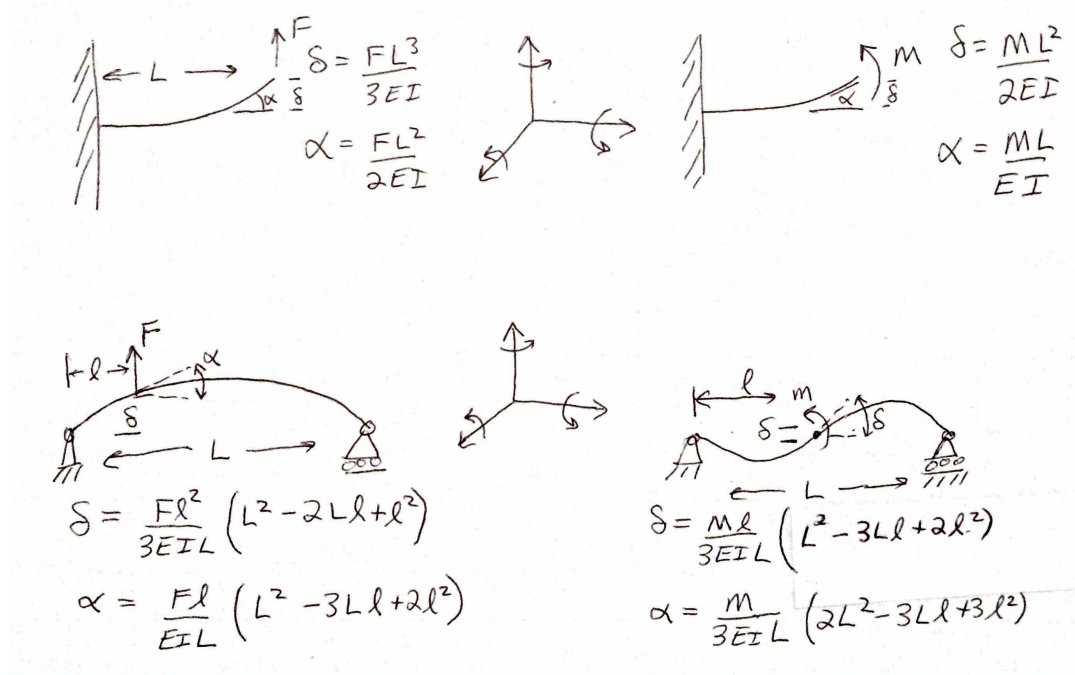 F
L
α δ
δ = FL³/3EI
α = FL²/2EI
M
α δ
δ = ML²/2EI
α = ML/EI
F
l
α
δ
L
δ = Fl²/3EIL (L² - 2Ll + l²)
α = Fl/EIL (L² - 3Ll + 2l²)
l
m
δ = δ
L
δ = Ml/3EIL (L² - 3Ll + 2l²)
α = m/3EIL (2L² - 3Ll + 3l²)